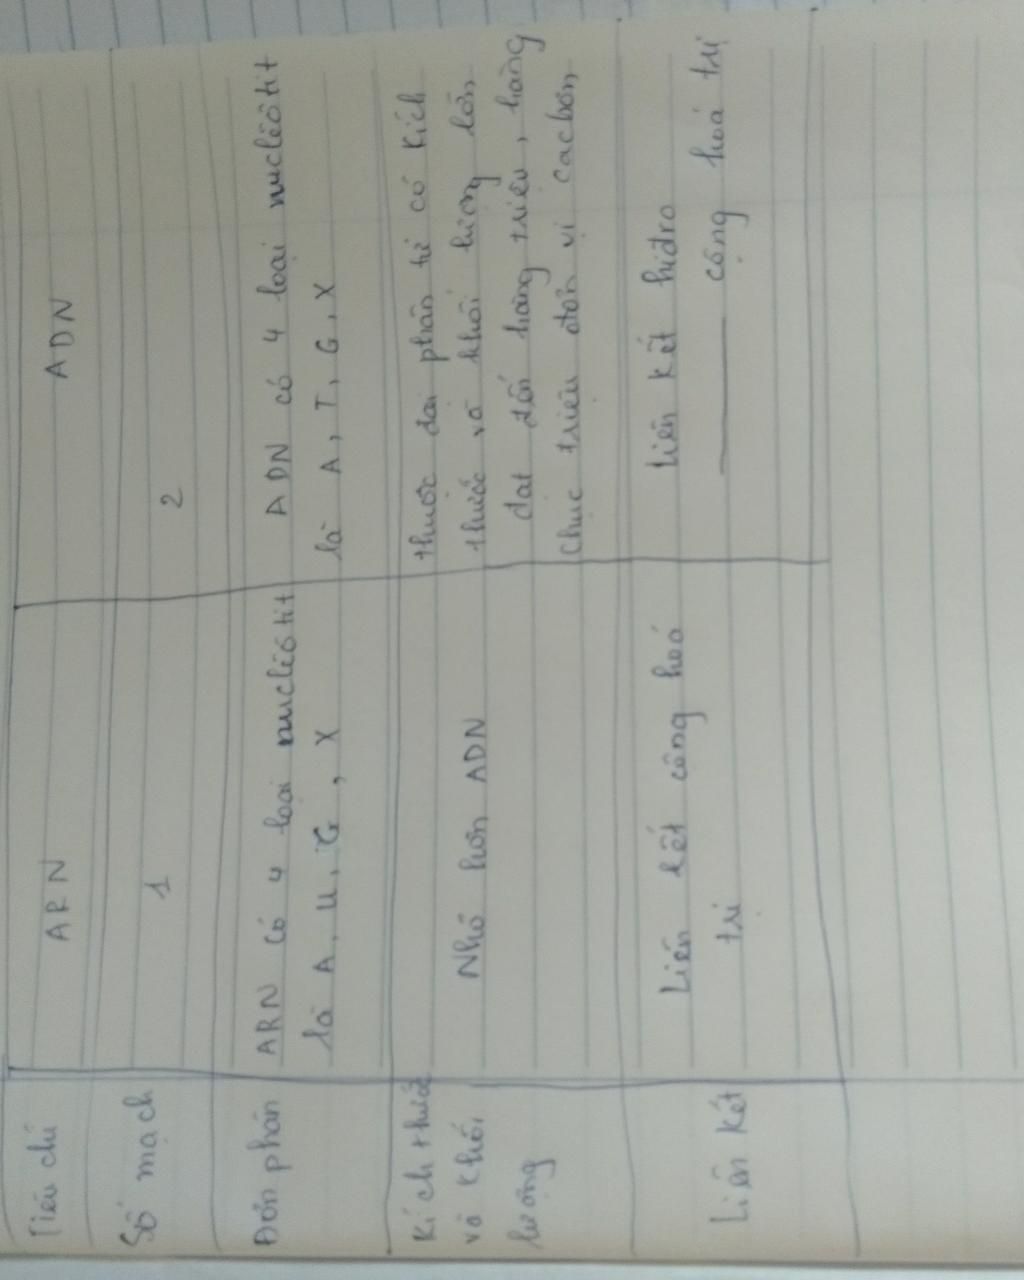 Tiêu chí
ARN
ADN
Số mạch
1
2
Đơn phân
ARN có 4 loại nuclêôtit
là A, U, G, X
ADN có 4 loại nuclêôtit
là A, T, G, X
Kích thước
và khối
lượng
Nhỏ hơn ADN
thuộc đại phân tử có kích
thước và khối lượng lớn
đạt đến hàng triệu, hàng
chục triệu đơn vị cacbon
Liên kết
Liên kết cộng hoá
trị
Liên kết hiđro
——— cộng hoá trị